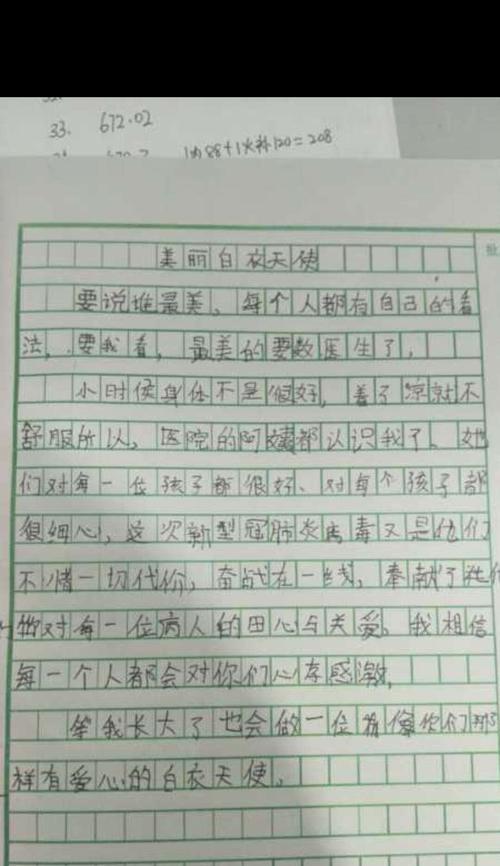 33. 672.02
1肉88+1火料120=208
批
美丽白衣天使
要说谁最美，每个人都有自己的看
法，要我看，最美的要数医生了，
小时侯身体不是很好，着了凉就不
舒服所以，医院的阿姨都认识我了、她
们对每一位孩子都很好、对每个孩子都
很细心，这次新型冠肺炎病毒又是他们
不惜一切代价，奋战在一线，奉献了
对每一位病人的田心与关爱。我相信
每一个人都会对你们心存感激，
等我长大了也会做一位像你们那
样有爱心的白衣天使。